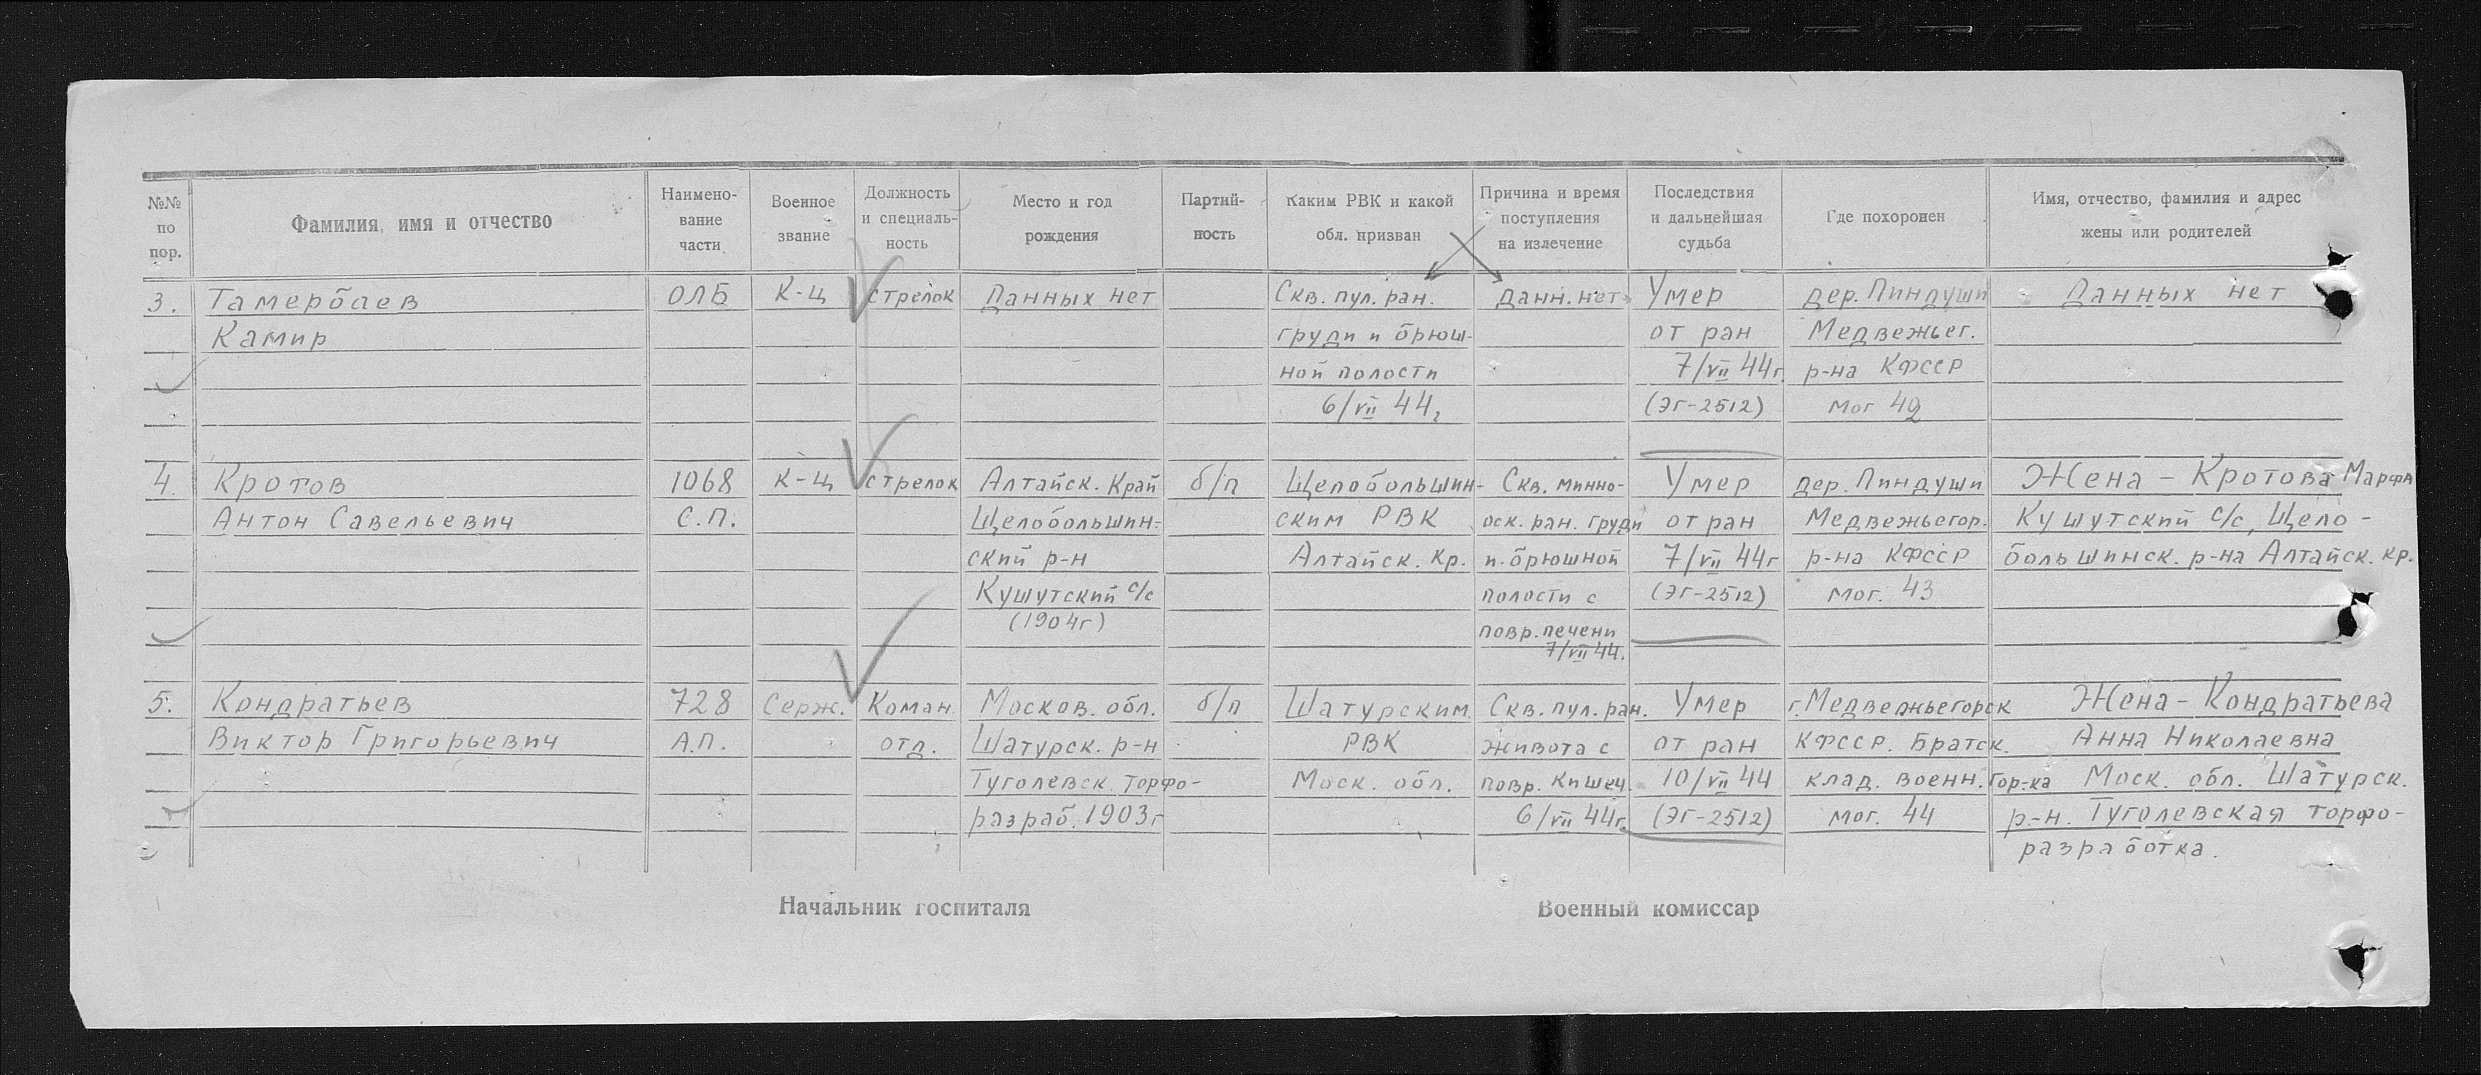 №№ по пор.
Фамилия, имя и отчество
Наимено-
вание
части
Военное
звание
Должность
и специаль-
ность
Место и год
рождения
Партий-
ность
Каким РВК и какой
обл. призван
Причина и время
поступления
на излечение
Последствия
и дальнейшая
судьба
Где похоронен
Имя, отчество, фамилия и адрес
жены или родителей
3. Тамербаев ОЛБ К-ц стрелок Данных нет Скв. пул. ран. Данн. нет Умер дер. Пиндуши Данных нет
Камир груди и брюш- от ран Медвежьег.
ной полости 7/VII 44г. р-на КФССР
6/VII 44г (ЭГ-2512) мог 42
4. Кротов 1068 К-ц стрелок Алтайск. Край б/п Щелобольшин- Скв. минно- Умер дер. Пиндуши Жена - Кротова Марфа
Антон Савельевич С.П. Щелобольшин- ским РВК оск. ран. груди от ран Медвежьегор. Кушутский с/с, Щело-
ский р-н Алтайск. кр. и брюшной 7/VII 44г р-на КФССР большинск. р-на Алтайск. кр.
Кушутский с/с полости с (ЭГ-2512) мог. 43
(1904г) повр. печени
7/VII 44.
5. Кондратьев 728 Серж. Коман. Москов. обл. б/п Шатурским Скв. пул. ран. Умер г. Медвежьегорск Жена - Кондратьева
Виктор Григорьевич А.П. отд. Шатурск. р-н РВК живота с от ран КФССР. Братск. Анна Николаевна
Туголевск. торфо- Моск. обл. повр. кишеч. 10/VII 44 клад. воен. гор-ка Моск. обл. Шатурск.
разраб. 1903г 6/VII 44г. (ЭГ-2512) мог. 44 р-н. Туголевская торфо-
разработка.
Начальник госпиталя
Военный комиссар